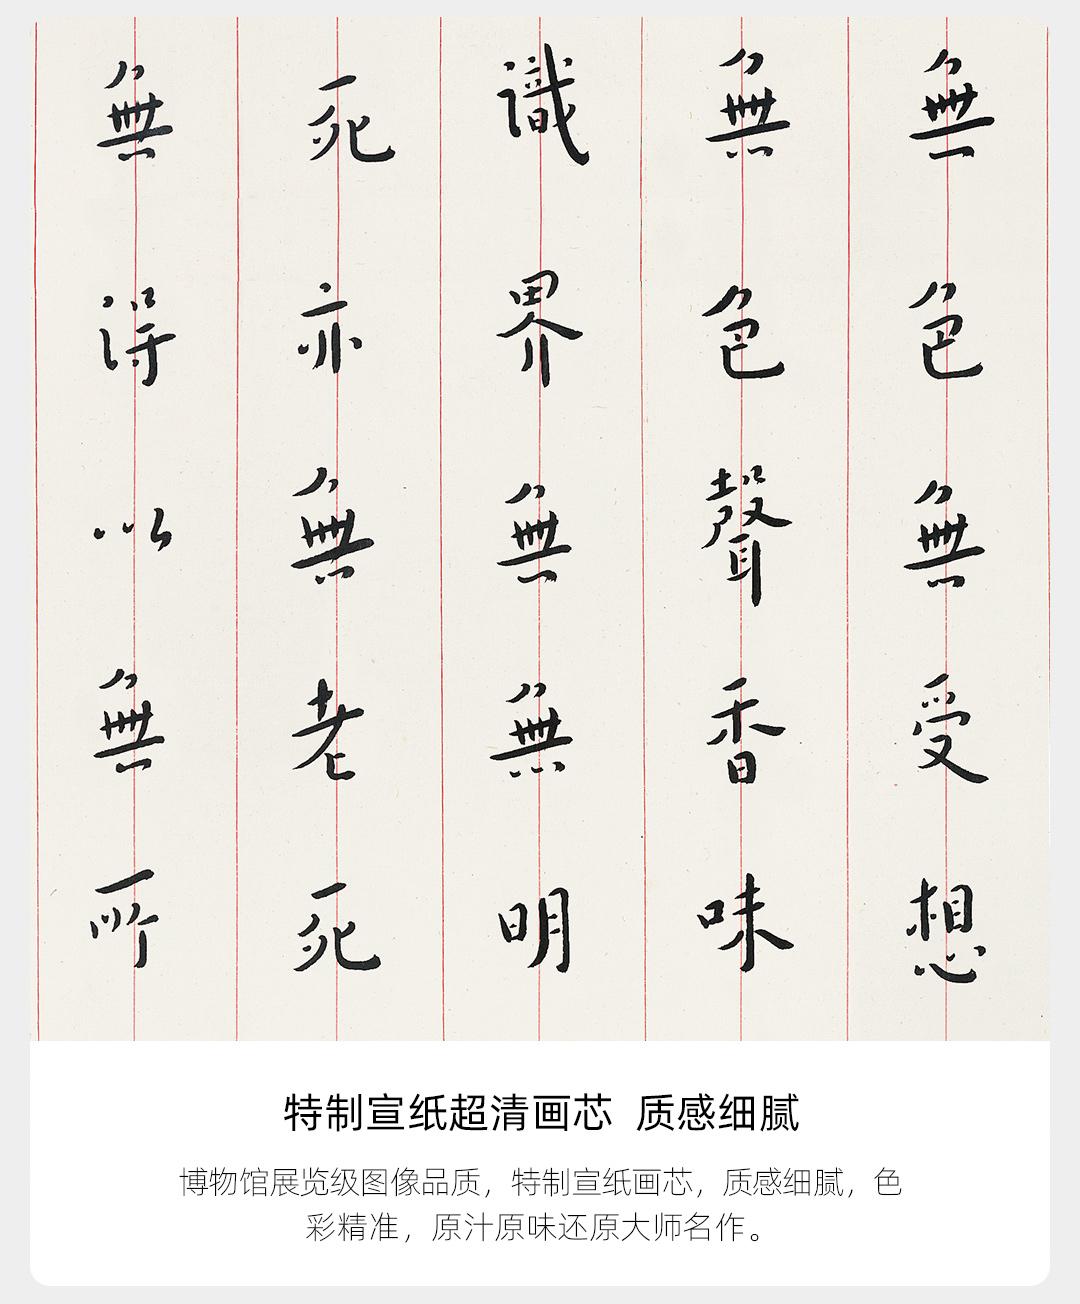 無色無受想
無色聲香味
識界無無明
死亦無老死
無得以無所
特制宣纸超清画芯 质感细腻
博物馆展览级图像品质，特制宣纸画芯，质感细腻，色
彩精准，原汁原味还原大师名作。